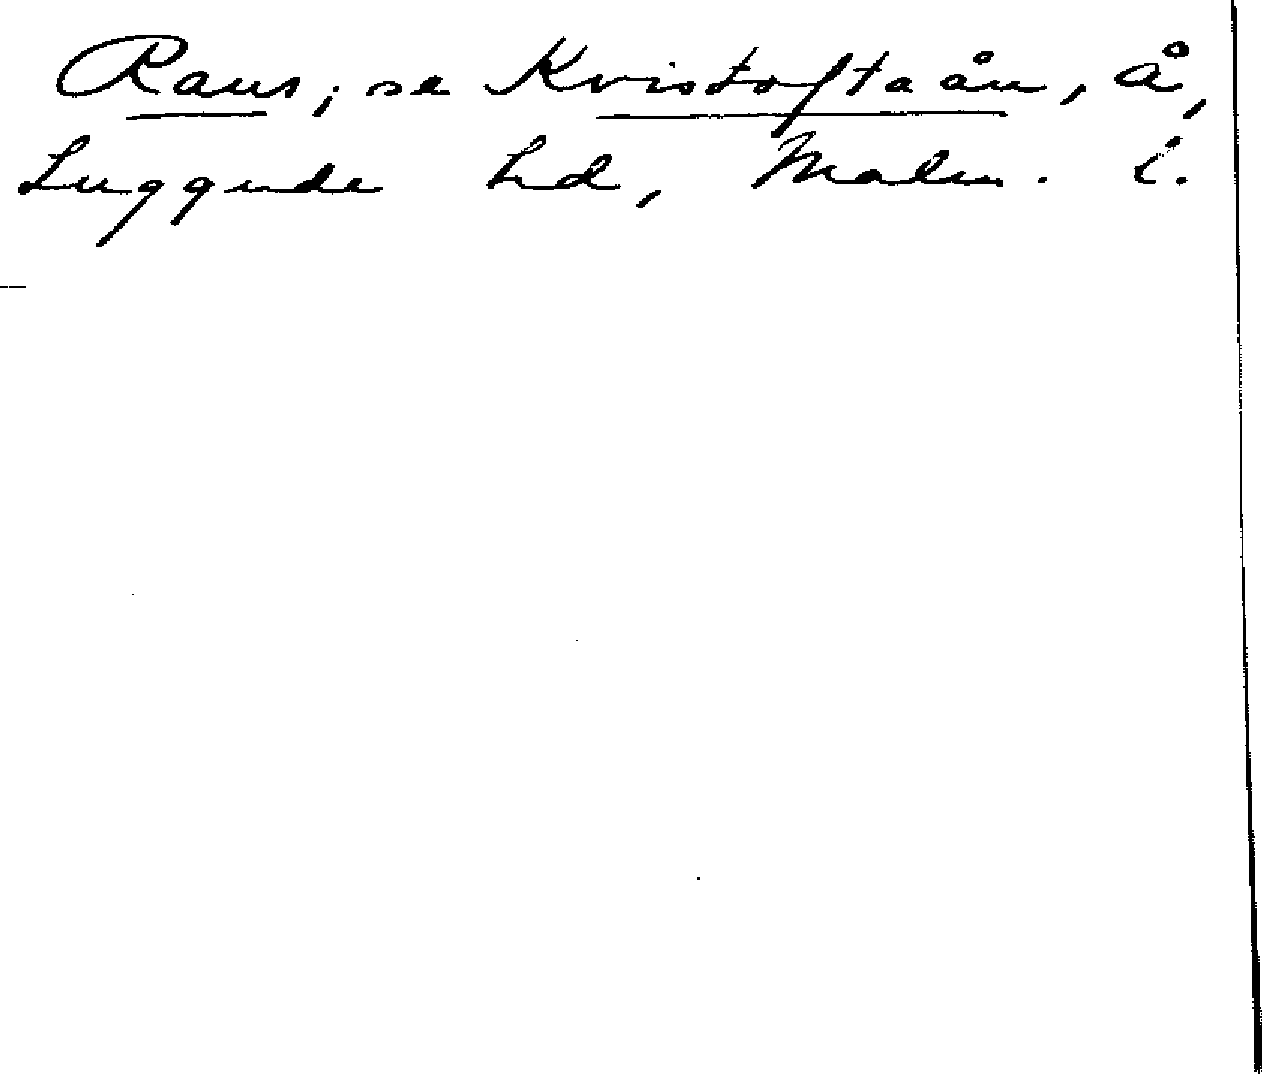 Raus, se Kvistoftaån, å,
Luggude hd, Malm. l.